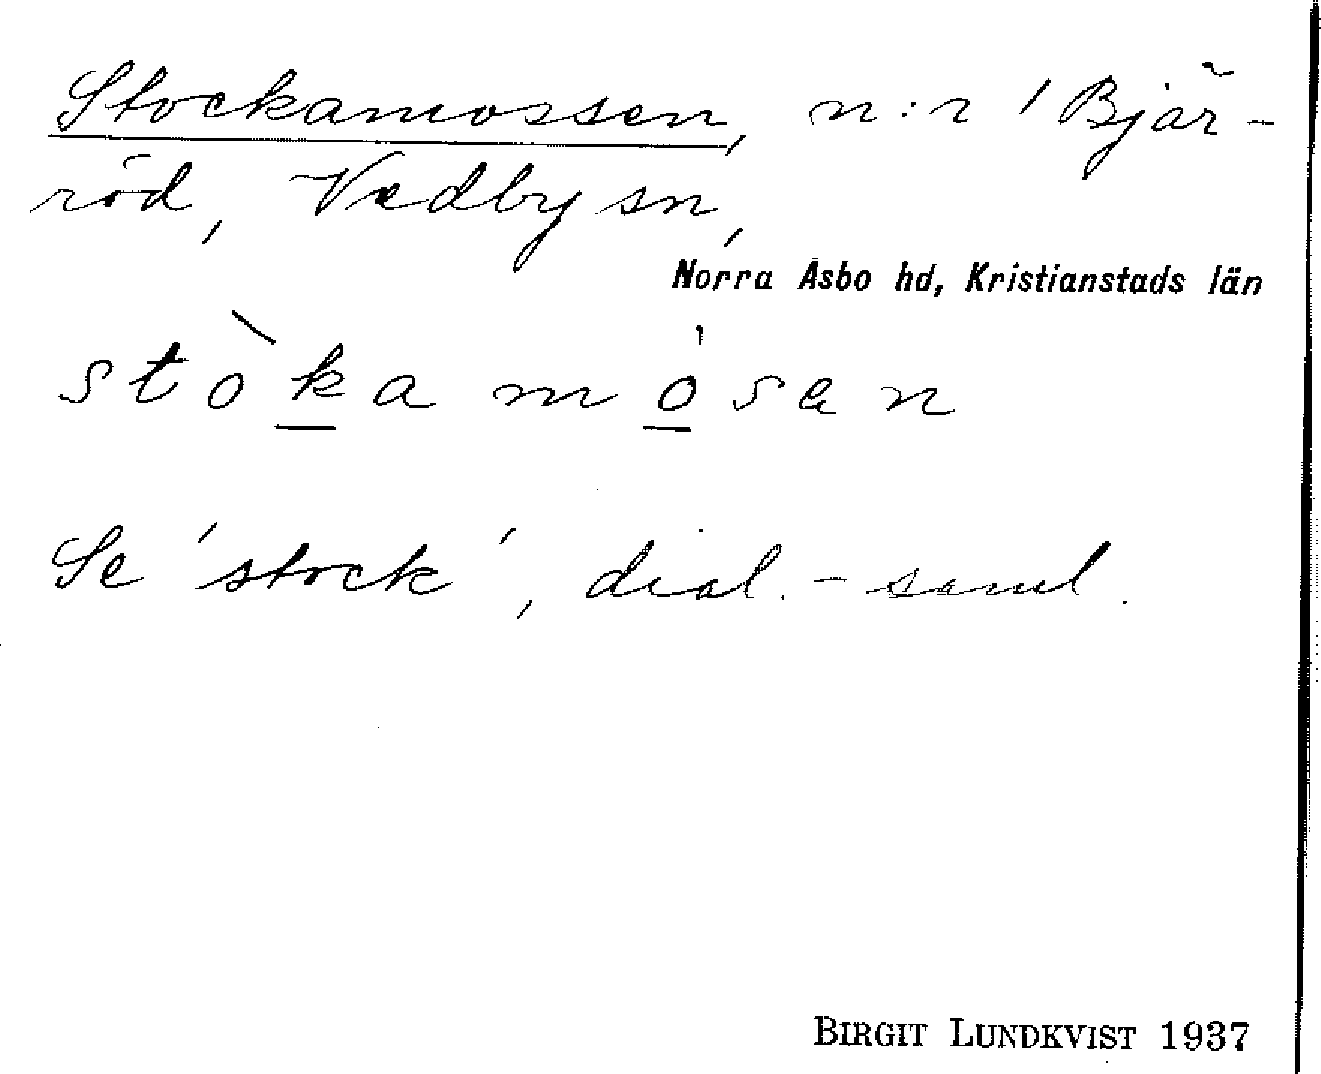 Stockamossen, n:r 1 Bjär-
röd, Vedby sn,
Norra Åsbo hd, Kristianstads län
stòkamósan
Se 'stock', dial.-saml.
BIRGIT LUNDKVIST 1937